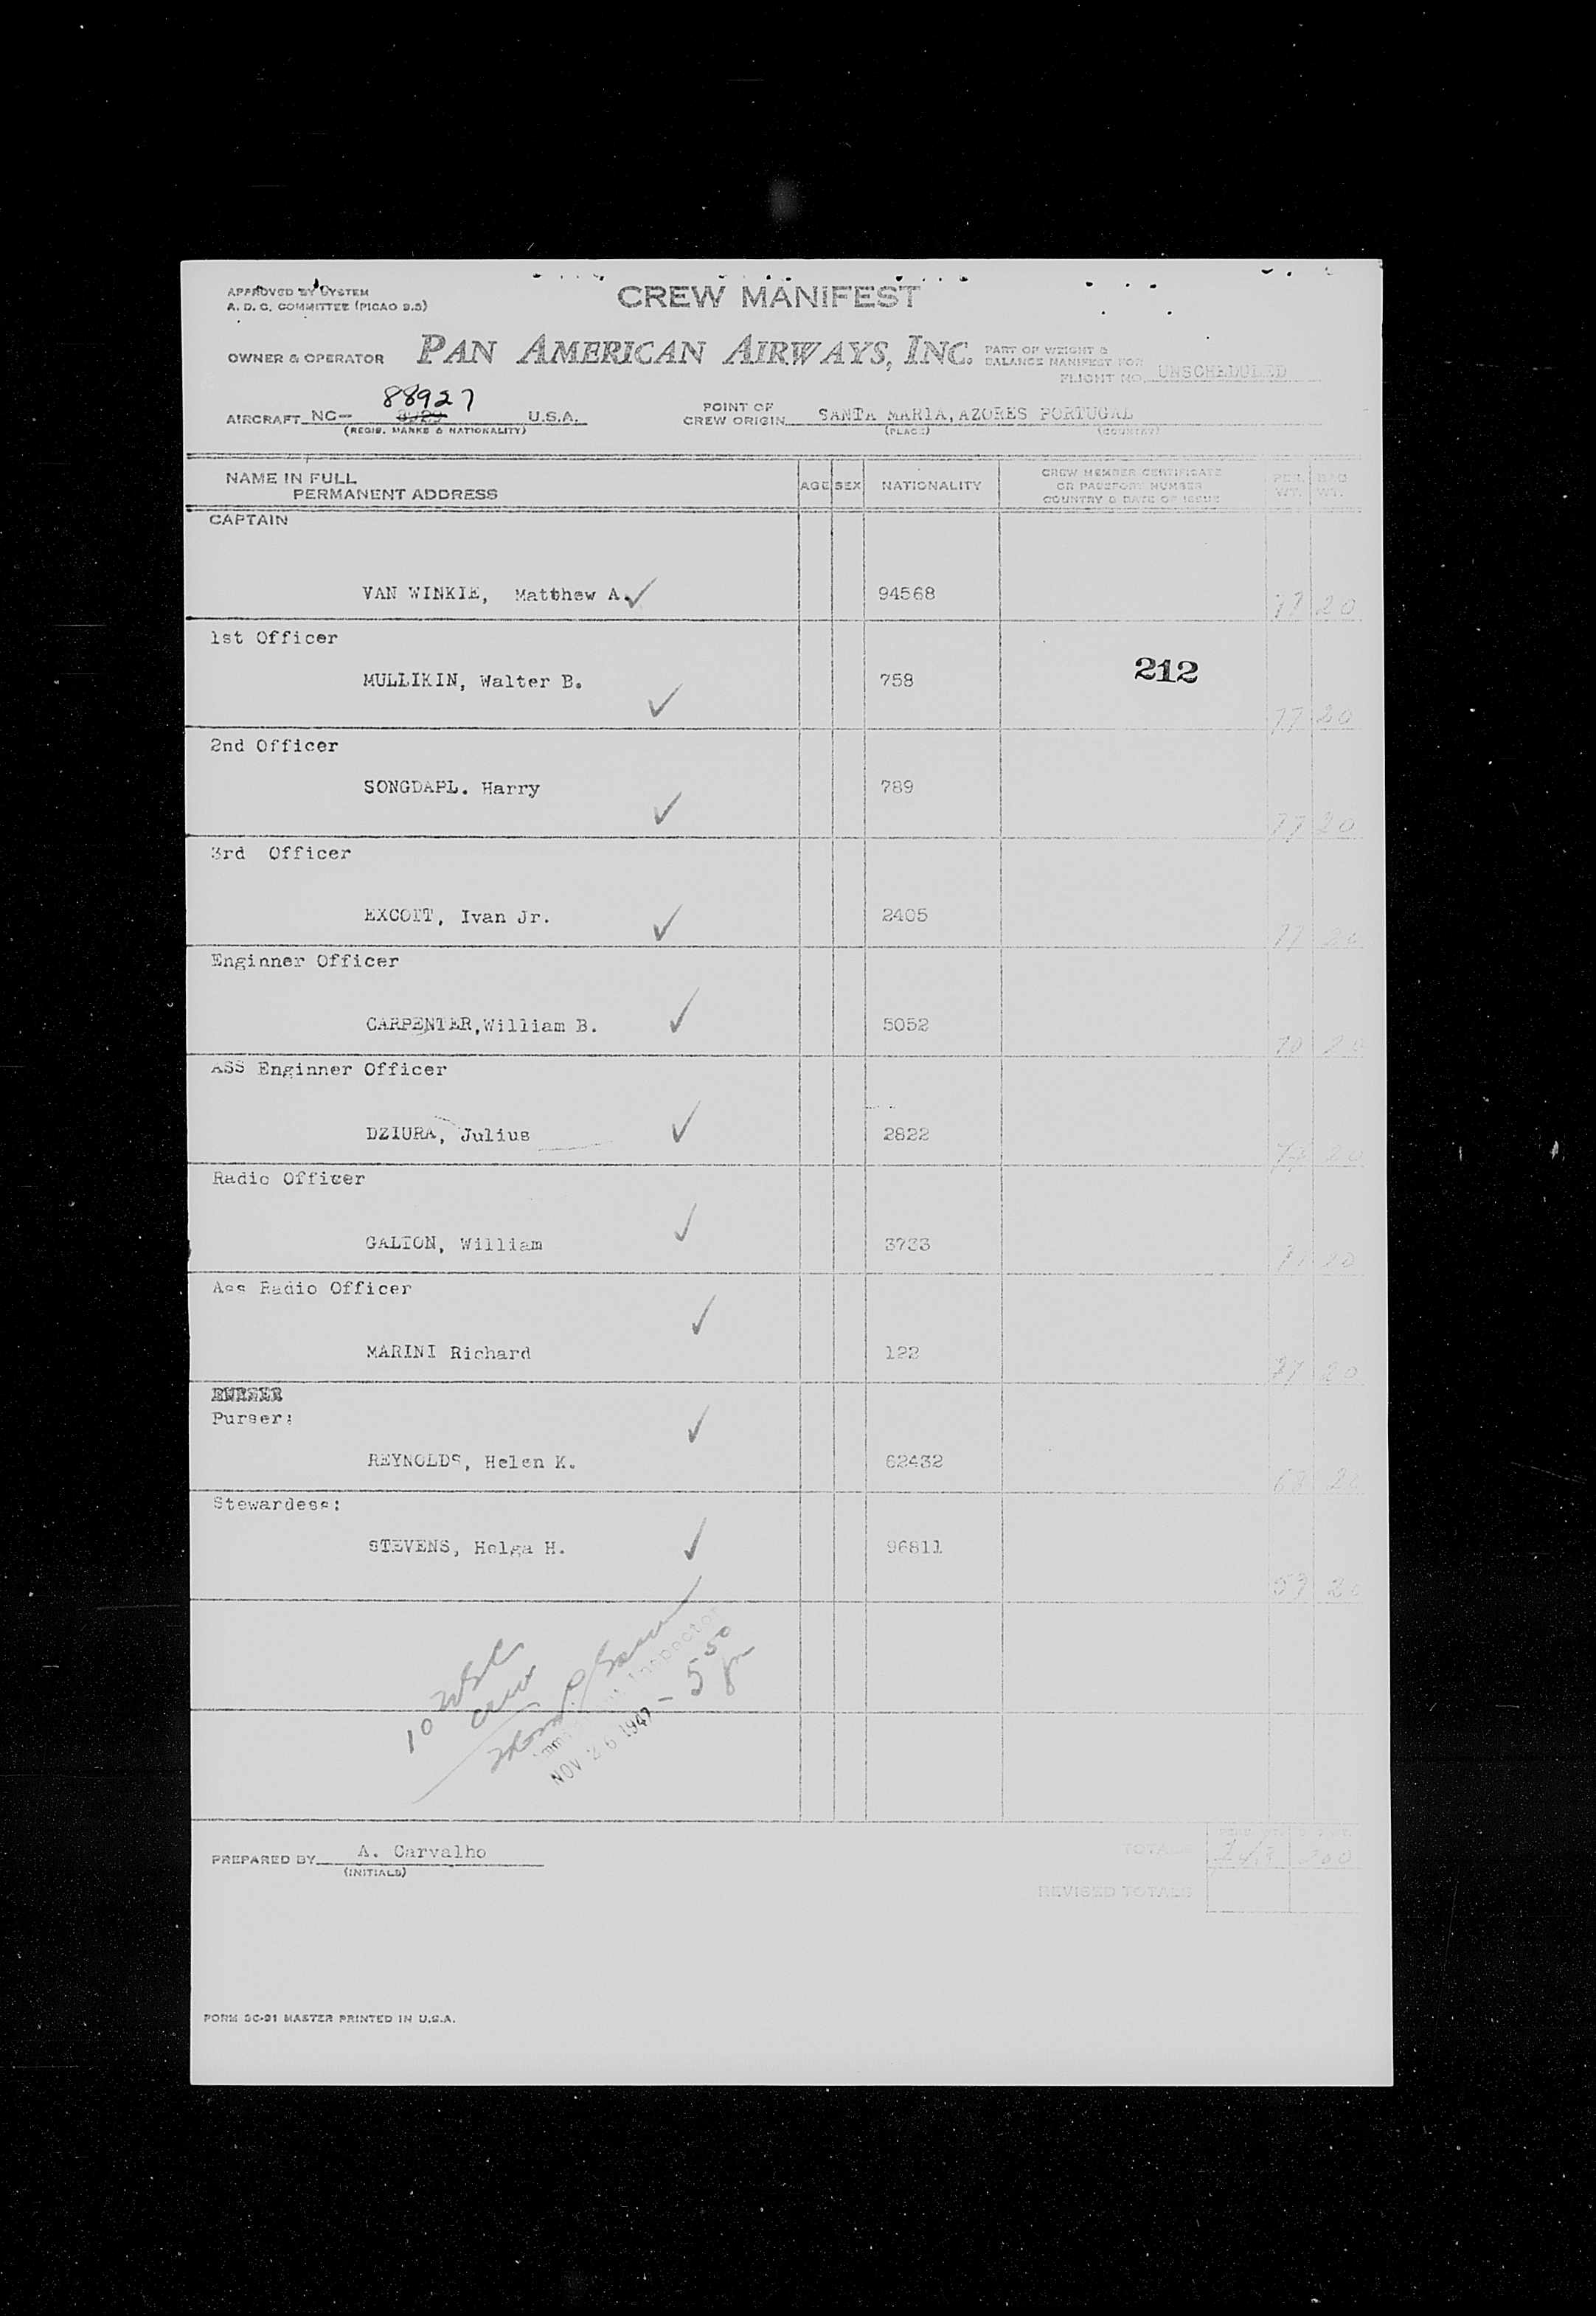 APPROVED BY SYSTEM
A. D. C. COMMITTEE (PICAO 9.5)
CREW MANIFEST
OWNER & OPERATOR PAN AMERICAN AIRWAYS, INC.
PART OF WEIGHT &
BALANCE MANIFEST FOR
FLIGHT NO. UNSCHEDULED
88927
AIRCRAFT NC- U.S.A.
(REGIS. MARKS & NATIONALITY)
POINT OF
CREW ORIGIN SANTA MARIA, AZORES PORTUGAL
(PLACE) (COUNTRY)
NAME IN FULL
PERMANENT ADDRESS
AGE SEX NATIONALITY
CREW MEMBER CERTIFICATE
OR PASSPORT NUMBER
COUNTRY & DATE OF ISSUE
PER. WT. BAG WT.
CAPTAIN
VAN WINKIE, Matthew A. ✓ 94568 77 20
1st Officer
212
MULLIKIN, Walter B. ✓ 758 77 20
2nd Officer
SONGDAPL. Harry ✓ 789 77 20
3rd Officer
EXCOTT, Ivan Jr. ✓ 2405 77 20
Enginner Officer
CARPENTER,William B. ✓ 5052 20
ASS Enginner Officer
DZIURA, Julius ✓ 2822 20
Radio Officer
GALTON, William ✓ 3733 20
Ass Radio Officer
MARINI Richard ✓ 122 77 20
PURSER
Purser:
REYNOLDS, Helen K. ✓ 62432 20
Stewardess:
STEVENS, Helga H. ✓ 96811 20
10 USC
crew
Immigrant Inspector
NOV 26 1947 - 5 50 pm
PREPARED BY A. Carvalho
(INITIALS)
TOTALS 200
REVISED TOTALS
FORM SC-21 MASTER PRINTED IN U.S.A.